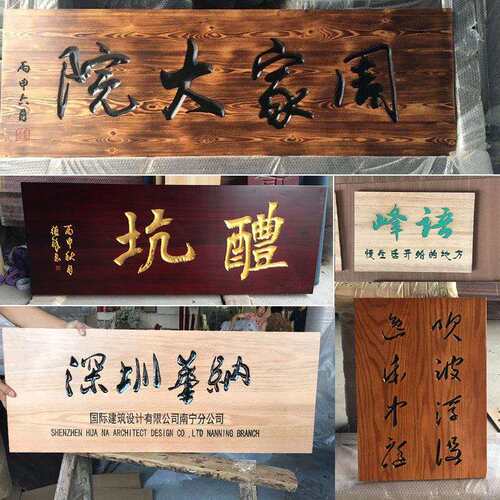 周家大院
丙申六月
醴坑
丙申秋月
峰语
慢生活开始的地方
深圳華納
国际建筑设计有限公司南宁分公司
SHENZHEN HUA NA ARCHITECT DESIGN CO ., LTD NANNING BRANCH
吹波浮